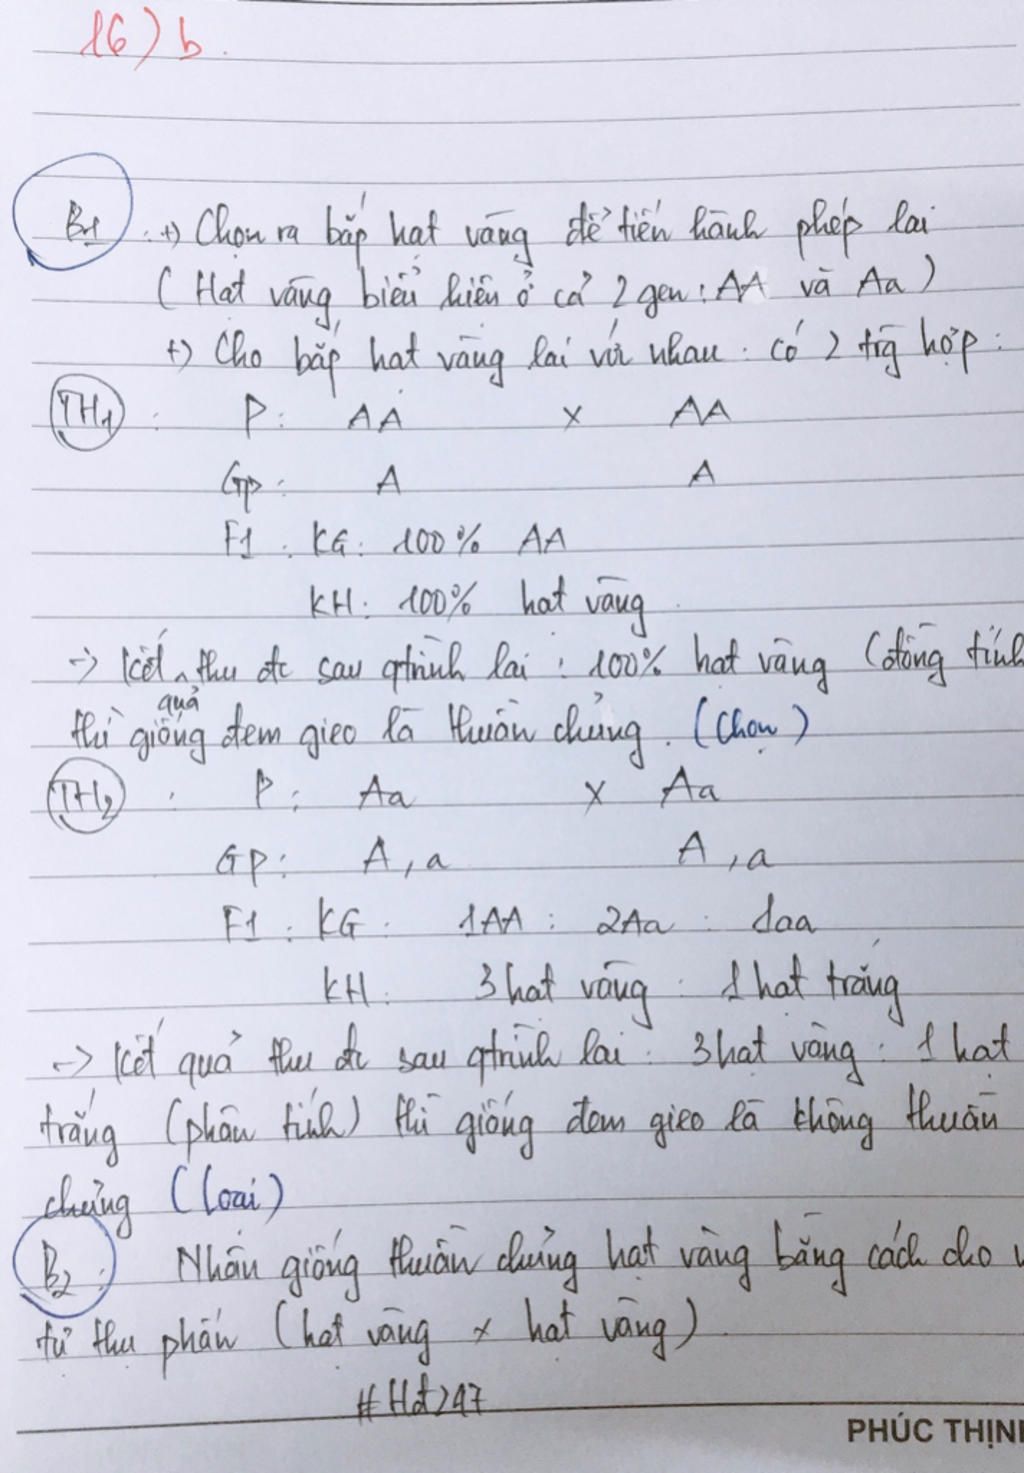 16) b.
B1 : +) Chọn ra bắp hạt vàng để tiến hành phép lai
( Hạt vàng biểu hiện ở cả 2 gen : AA và Aa )
+) Cho bắp hạt vàng lai với nhau : có 2 trg hợp :
TH1 : P : AA x AA
Gp : A A
F1 : KG : 100% AA
KH : 100% hạt vàng
-> Kết quả thu đc sau qtrình lai : 100% hạt vàng (đồng tính
thì giống đem gieo là thuần chủng . (Chọn)
TH2 : P : Aa x Aa
GP : A , a A , a
F1 : KG : 1AA : 2Aa : 1aa
KH : 3 hạt vàng : 1 hạt trắng
-> Kết quả thu đc sau qtrình lai : 3 hạt vàng : 1 hạt
trắng (phân tính) thì giống đem gieo là không thuần
chủng (loại)
B2 : Nhân giống thuần chủng hạt vàng bằng cách cho
tự thụ phấn (hạt vàng x hạt vàng)
#Hdt247
PHÚC THỊN